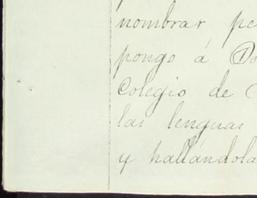 nombrar pe
pongo á Do
Colegio de
las lenguas
y hallándola